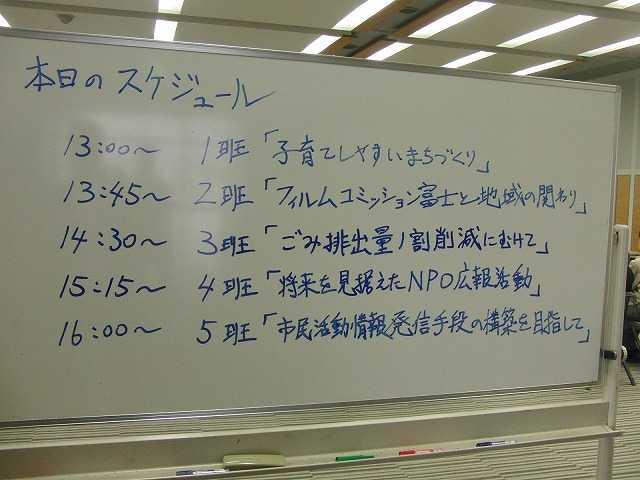 本日のスケジュール
13:00〜 1班「子育てしやすいまちづくり」
13:45〜 2班「フィルムコミッション富士と地域の関わり」
14:30〜 3班「ごみ排出量1割削減にむけて」
15:15〜 4班「将来を見据えたNPO広報活動」
16:00〜 5班「市民活動情報発信手段の構築を目指して」